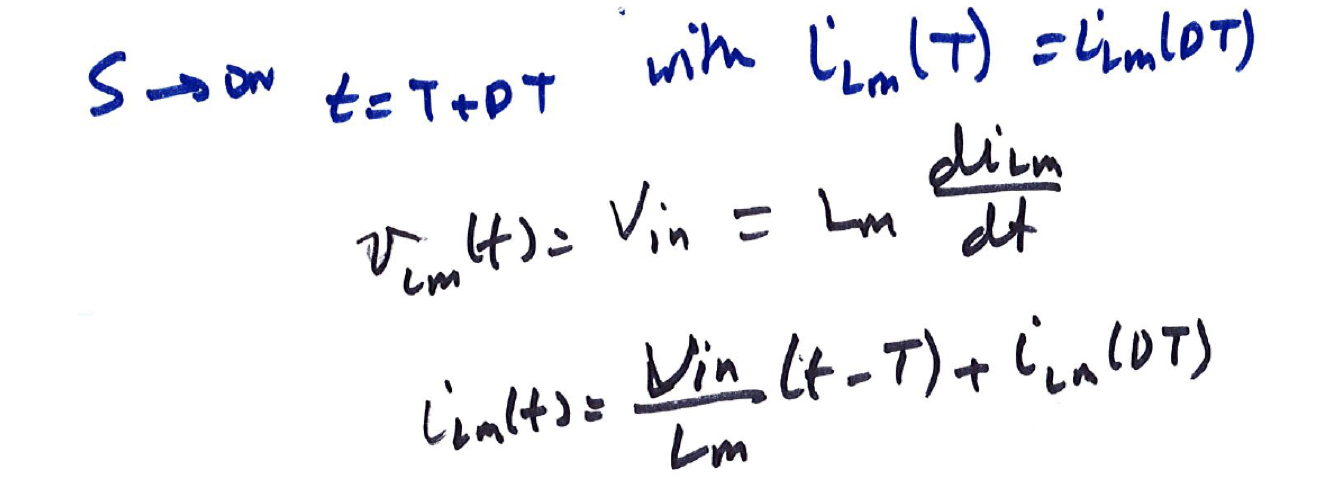 S → ON t = T + DT with i_Lm(T) = i_Lm(DT)
v_Lm(t) = Vin = Lm di_Lm/dt
i_Lm(t) = Vin/Lm (t - T) + i_Lm(DT)